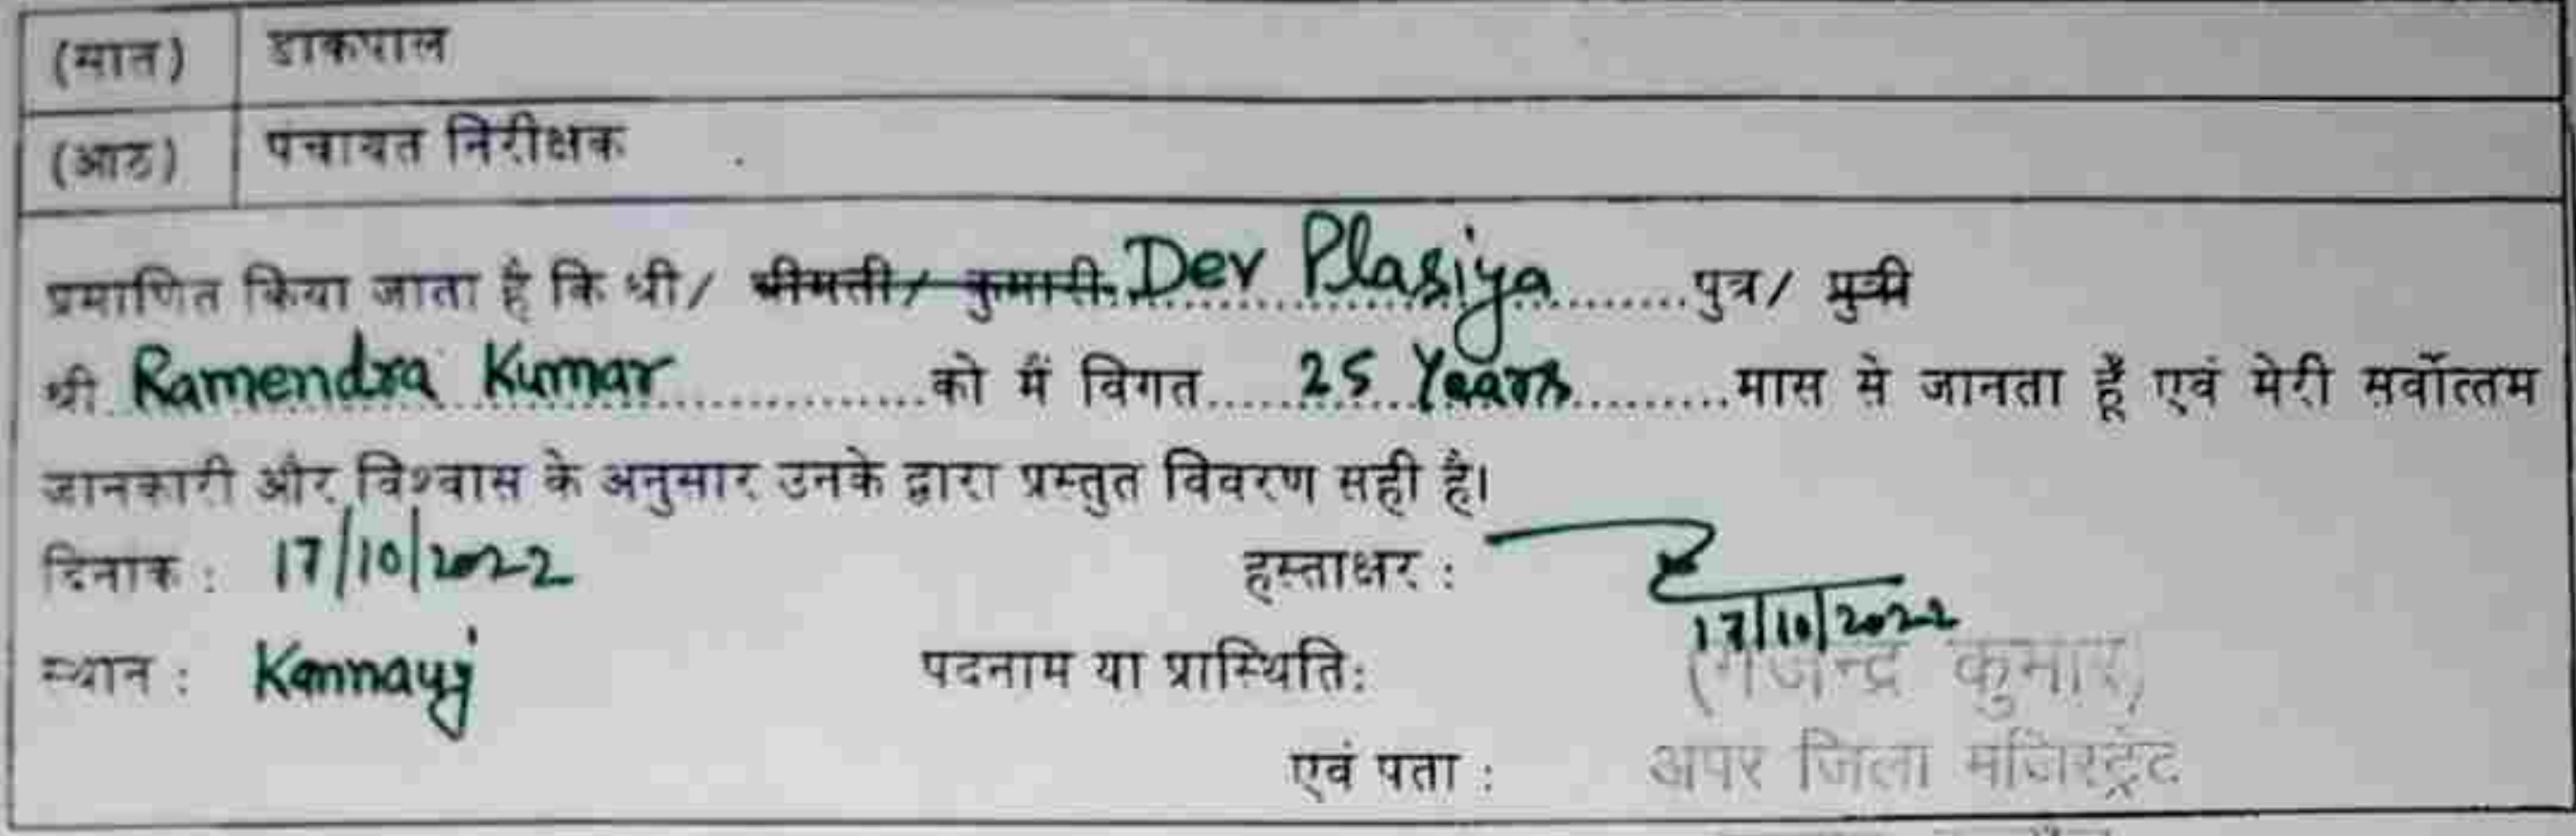 (सात) डाकपाल
(आठ) पंचायत निरीक्षक
प्रमाणित किया जाता है कि श्री/ श्रीमती/ कुमारी. Dev Plasiya ..........पुत्र/ पुत्री
श्री. Ramendra Kumar ..................को मैं विगत.... 25 Years ..........मास से जानता हूँ एवं मेरी सर्वोत्तम
जानकारी और विश्वास के अनुसार उनके द्वारा प्रस्तुत विवरण सही है।
दिनांक : 17/10/2022 हस्ताक्षर :
17/10/2022
स्थान : Kannauj पदनाम या प्रास्थिति: (गजेन्द्र कुमार)
एवं पता : अपर जिला मजिस्ट्रेट